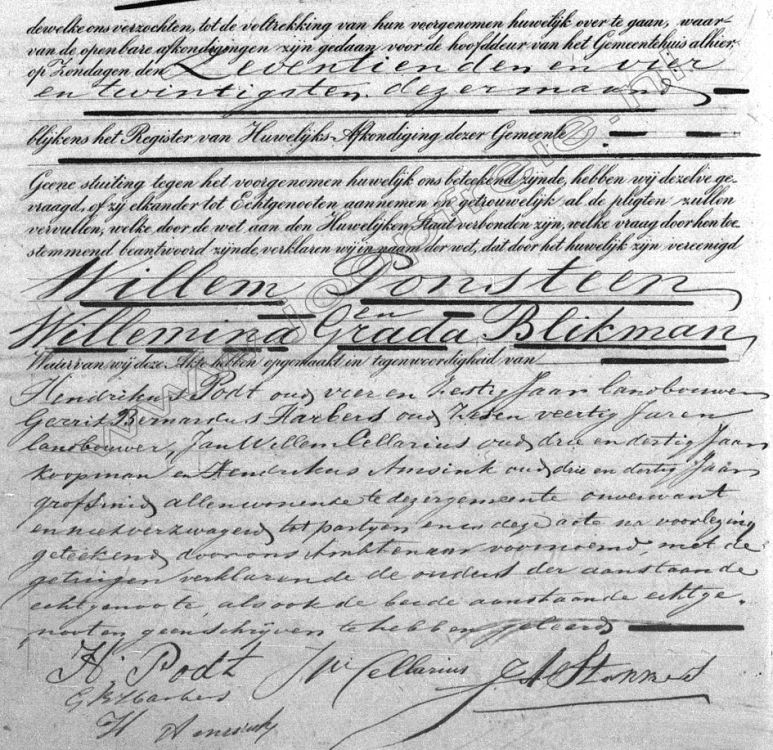 dewelke ons verzochten, tot de voltrekking van hun voorgenomen huwelijk over te gaan, waar-
van de openbare afkondigingen zijn gedaan voor de hoofddeur van het Gemeentehuis alhier,
op Zondagen den Zeventienden en vier
en twintigsten dezer maand
blijkens het Register van Huwelijks-Afkondiging dezer Gemeente
Geene stuiting tegen het voorgenomen huwelijk ons beteekend zijnde, hebben wij dezelve ge-
vraagd, of zij elkander tot Echtgenooten aannemen en getrouwelijk al de pligten zullen
vervullen, welke door de wet aan den Huwelijken Staat verbonden zijn, welke vraag door hen toe-
stemmend beantwoord zijnde, verklaren wij in naam der wet, dat door het huwelijk zijn vereenigd
Willem Ponsteen
en
Willemina Grada Blikman
Waarvan wij deze Akte hebben opgemaakt in tegenwoordigheid van
Hendrikus Podt oud vier en zestig Jaar landbouwer
Gerrit Bernardus Harbers oud zesen veertig Jaren
landbouwer, Jan Willem Cellarius oud drie en dertig Jaar
koopman en Hendrikus Amsink oud drie en dertig Jaar
grofsmid allen wonende te dezer gemeente onverwant
en niet verzwagerd tot partyen en is deze acte na voorlezing
geteekend door ons Ambtenaar voornoemd, met de
getuigen verklarende de ouders der aanstaande
echtgenoote, alsook de beide aanstaande echtge-
nooten geen schrijven te hebben geleerd
H. Podt JW Cellarius
GB Harbers
H Amsink